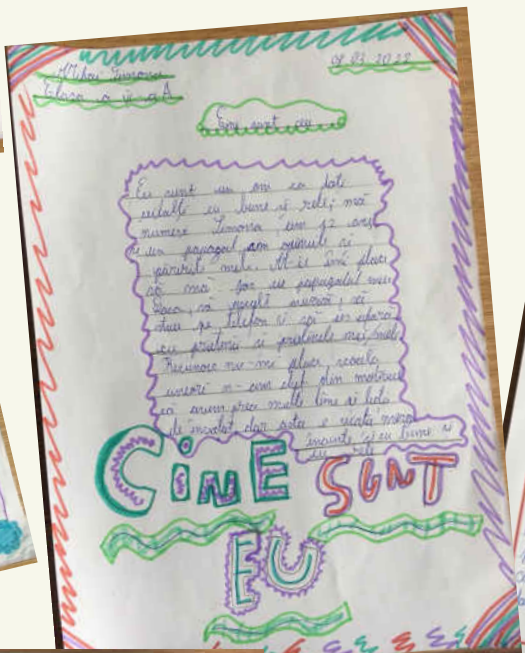 Mihai Simona
08.03.2022
Clasa a V a A
Cine sunt eu
Eu sunt un om ca toate
celalte cu bune și rele; mă
numesc Simona, am 12 ani
un papagal am opiniile și
părerile mele. Îmi place
să mă joc cu papagalul meu
să ascult muzică, să
stau pe telefon și să ies afară
cu prietenii și prietenele mele
Recunosc nu-mi place școala
uneori n-am chef din motivul
că avem prea multe teme și lecții
de învățat dar asta e viața merge
înainte și cu bune și
cu rele
CiNE SUNT
EU